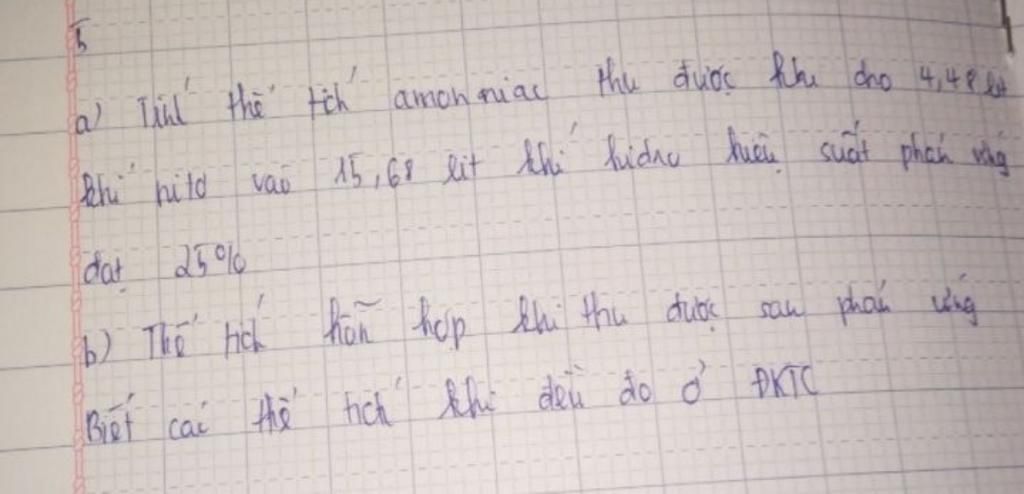 5
a) Tính thể tích amohniac thu được khi cho 4,48 lít
khí nitơ vào 15,68 lít khí hidro hiệu suất phản ứng
đạt 25%
b) Thể tích hỗn hợp khí thu được sau phản ứng
Biết các thể tích khí đều đo ở ĐKTC